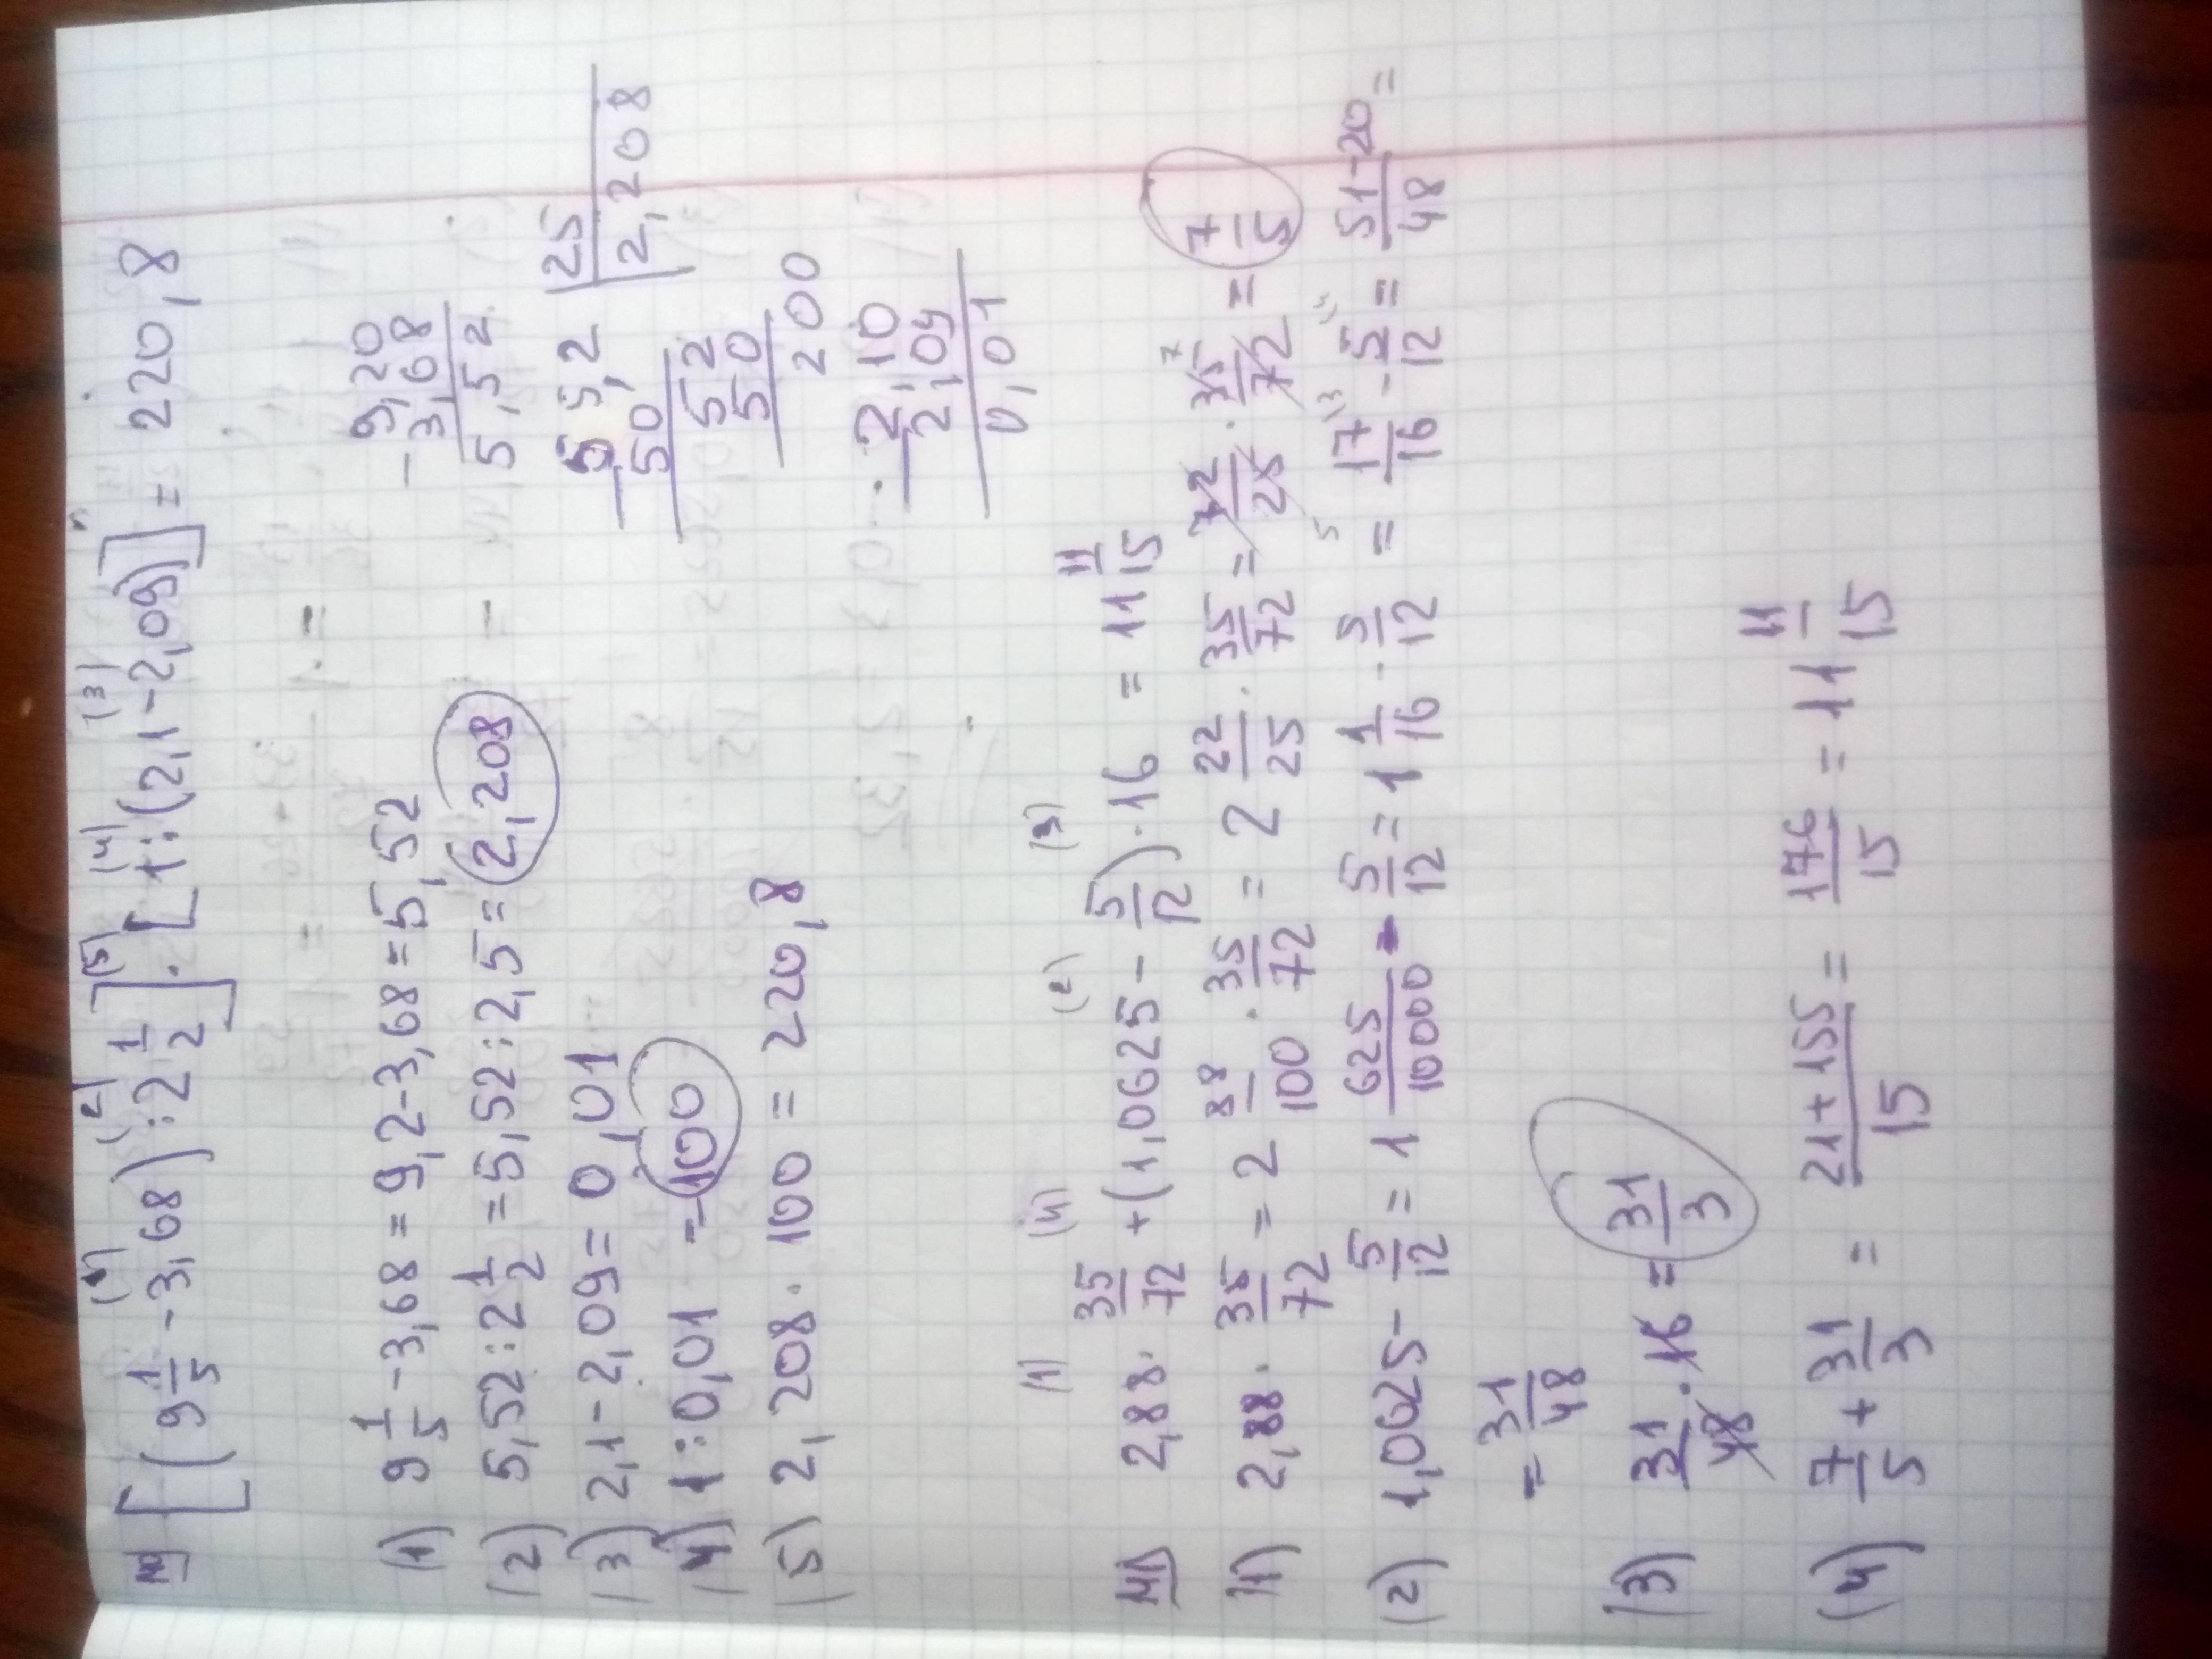 [(9 1/5 - 3,68) : 2 1/2] · [1 : (2,1 - 2,09)] = 220,8
(1) (2) (5) (4) (3)
(1) 9 1/5 - 3,68 = 9,2 - 3,68 = 5,52
(2) 5,52 : 2 1/2 = 5,52 : 2,5 = 2,208
(3) 2,1 - 2,09 = 0,01
(4) 1 : 0,01 = 100
(5) 2,208 · 100 = 220,8
- 9,20
3,68
5,52
- 55,2 | 25
50 | 2,208
52
50
200
- 2,10
2,09
0,01
(1) (4) (2) (3)
2,88 · 35/72 + (1,0625 - 5/12) · 16 = 11 11/15
(1) 2,88 · 35/72 = 2 88/100 · 35/72 = 2 22/25 · 35/72 = 72/25 · 35/72 = 7/5
7
5
(2) 1,0625 - 5/12 = 1 625/10000 - 5/12 = 1 1/16 - 5/12 = 17/16 - 5/12 = 51-20/48 =
= 31/48
(3) 31/48 · 16 = 31/3
(4) 7/5 + 31/3 = 21+155/15 = 176/15 = 11 11/15